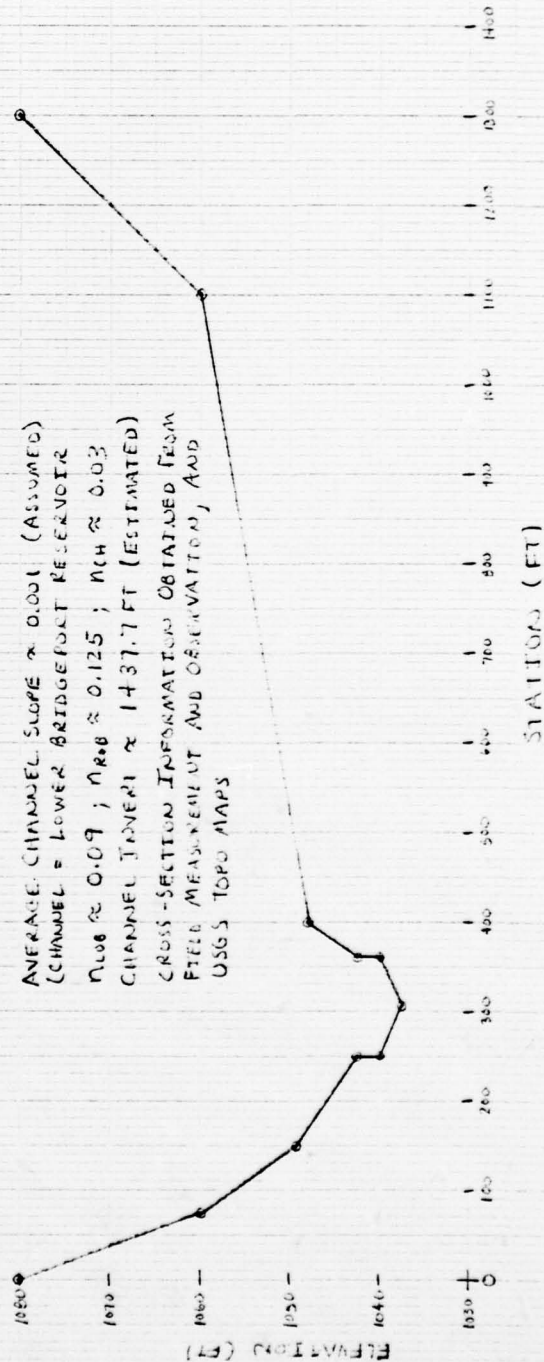 AVERAGE CHANNEL SLOPE ≈ 0.001 (ASSUMED)
(CHANNEL = LOWER BRIDGEPORT RESERVOIR
nLOB ≈ 0.09 ; nROB ≈ 0.125 ; nCH ≈ 0.03
CHANNEL INVERT ≈ 1037.7 FT (ESTIMATED)
CROSS-SECTION INFORMATION OBTAINED FROM
FIELD MEASUREMENT AND OBSERVATION, AND
USGS TOPO MAPS
ELEVATION (FT)
1080
1070
1060
1050
1040
1030
0
100
200
300
400
500
600
700
800
900
1000
1100
1200
1300
1400
STATION (FT)